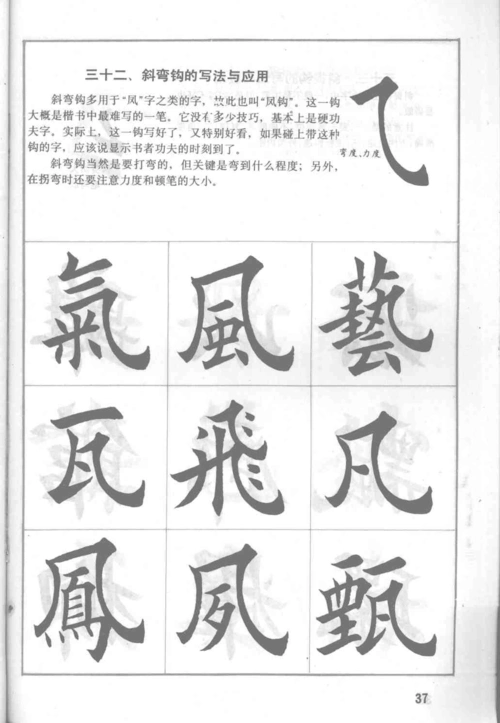 三十二、斜弯钩的写法与应用
斜弯钩多用于“凤”字之类的字，故此也叫“凤钩”。这一钩
大概是楷书中最难写的一笔。它没有多少技巧，基本上是硬功
夫字。实际上，这一钩写好了，又特别好看，如果碰上带这种
钩的字，应该说是显示书者功夫的时刻到了。
斜弯钩当然是要打弯的，但关键是弯到什么程度；另外，
在拐弯时还要注意力度和顿笔的大小。
弯度、力度
氣 風 藝
瓦 飛 凡
鳳 夙 甄
37